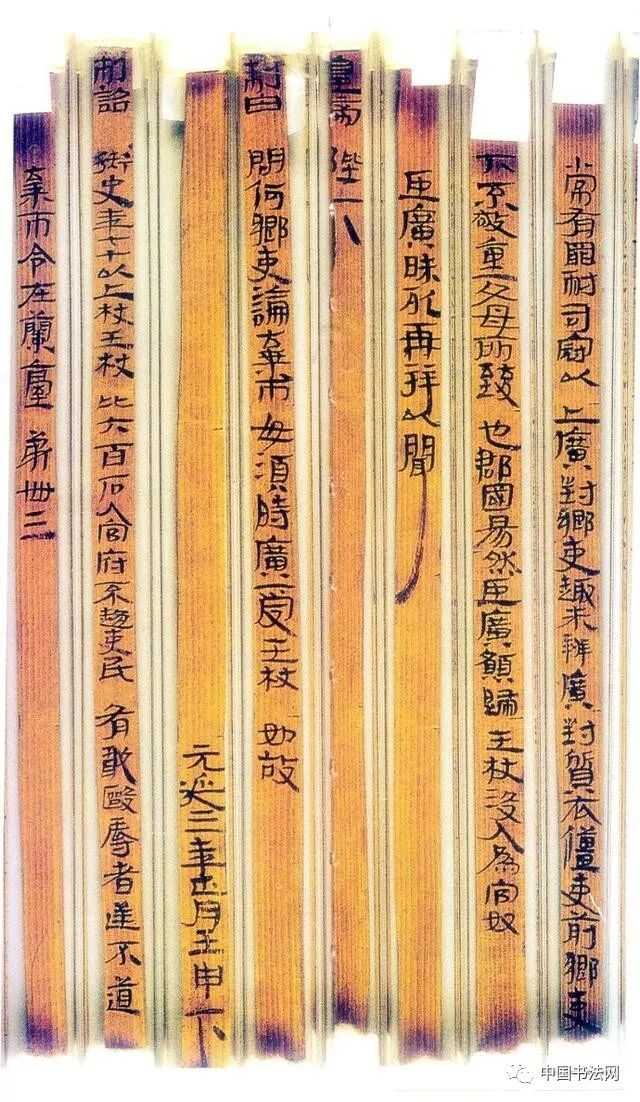 常有罪耐司寇以上廣對鄉吏趣未辨廣對質衣僵吏前鄉吏
下不敬重父母所致也郡國易然臣廣願歸王杖沒入為官奴
臣廣昧死再拜以聞
皇帝陛下
制曰問何鄉吏論棄市毋須時廣受王杖如故
元延三年正月壬申下
制詔御史年七十以上杖王杖比六百石入官府不趨吏民有敢毆辱者逆不道
棄市令在蘭臺第卌三
中国书法网